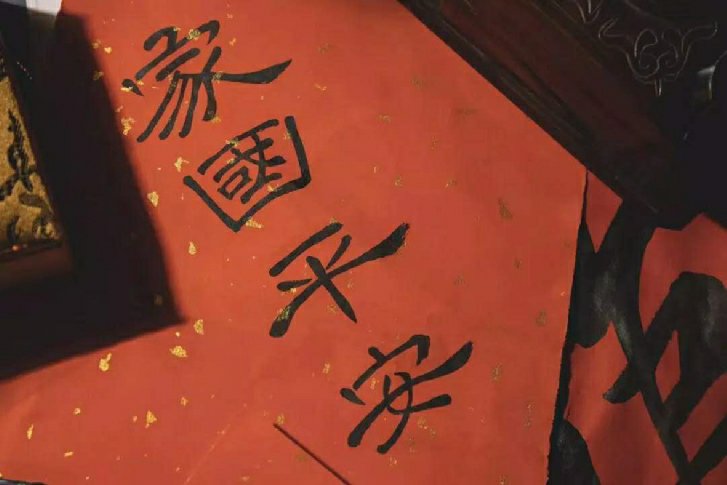 家國平安